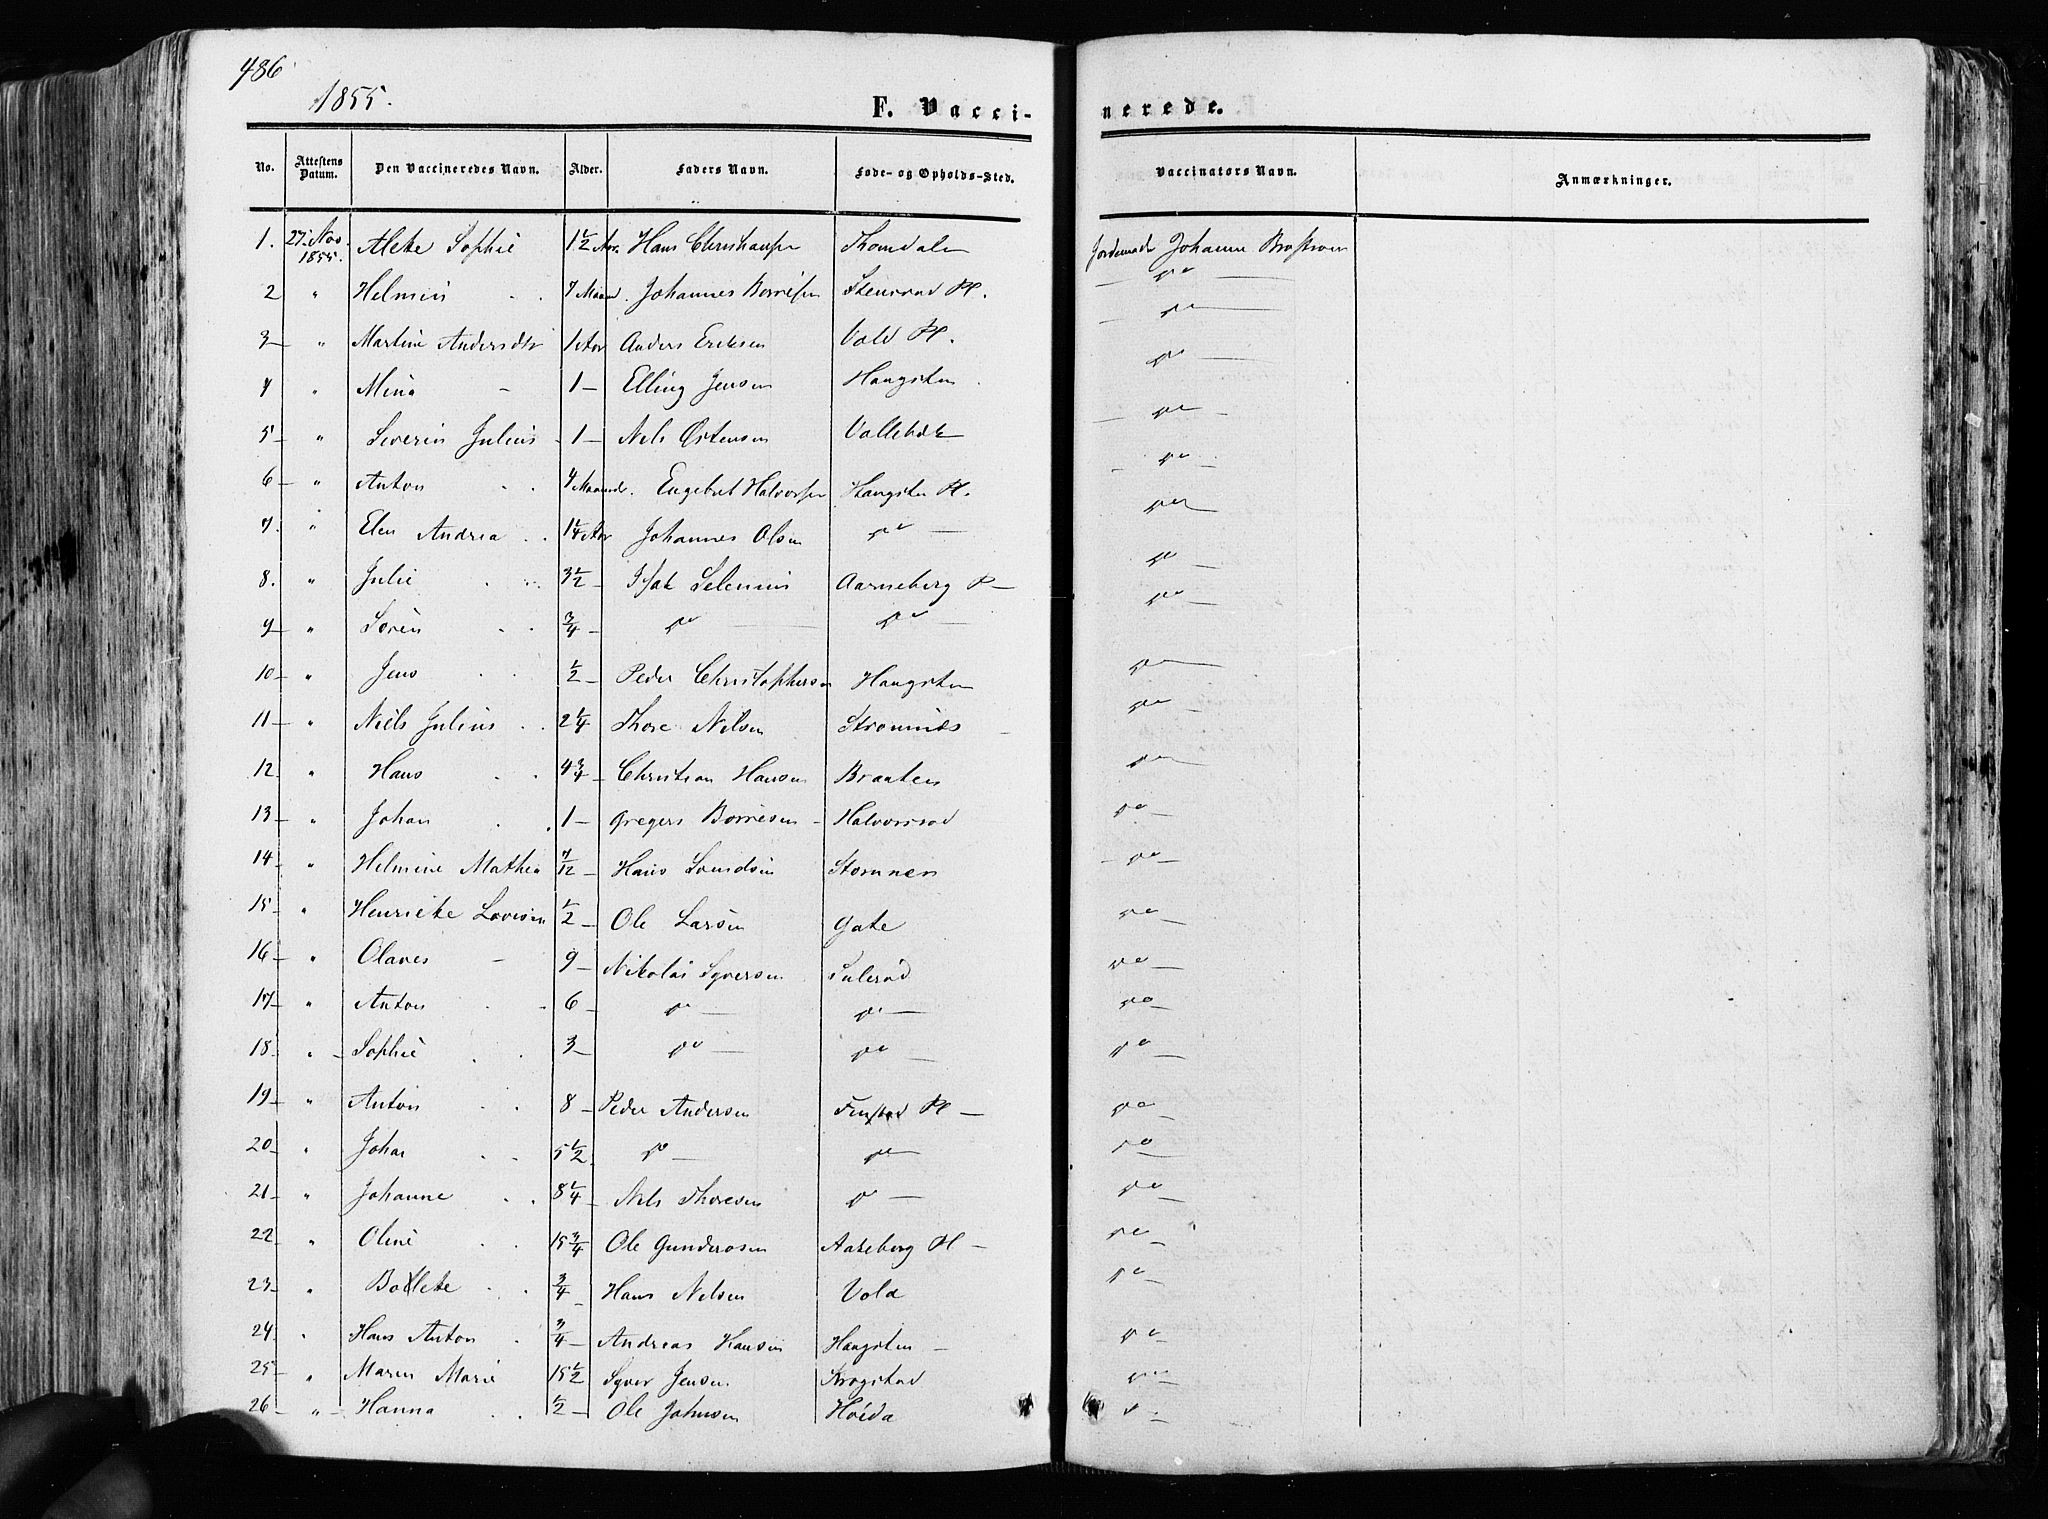 486
1855.
F. Vacci-
nerede.
No. Attestens Datum. Den Vaccineredes Navn. Alder. Faders Navn. Føde- og Opholds-Sted. Vaccinators Navn. Anmærkninger.
1. 27 Nov. 1855. Alete Sophie 1 1/2 Aar. Hans Thomdalen Jordemod. Johanne
2 " Helmin 7 Maaned. Johannes Borresen Stensrud Pl. do
3 " Martine Andersdtr 1 Aar Anders Eriksen Vold Pl. do
4 " Mina 1 Elling Jensen Haugsten do
5 " Severin Julius 1 Nels Ostensen Vallebek do
6 " Anton 4 Maaned. Engebret Halvorsen Haugsten Pl. do
7. " Elen Andrea 1 1/4 Aar Johannes Olsen do do
8. " Julie 3 1/2 Isak Selenius Aarneberg P do
9 " Soren 3/4 do do do
10 " Jens 1/2 Peder Christophersen Haugsten do
11 " Niels Julius 2 1/4 Thore Nilsen Stromnes do
12 " Hans 4 3/4 Christian Hansen Braaten do
13 " Johan 1 Gregers Borresen Halvorsrod do
14 " Helmine Mathea 7/12 Hans Svendsen Stomner do
15 " Henriete Lovise 1/2 Ole Larsen Gate do
16 " Olaves 9 Nikolai Syversen Sulerod do
17 " Anton 6 do do do
18 " Sophie 3 do do do
19 " Anton 8 Peder Andersen Finstad Pl do
20 " Johan 5 1/2 do do do
21 " Johanne 8 1/4 Nels Thoresen do do
22 " Oline 15 3/4 Ole Gundersen Aakeberg Pl do
23 " Bollete 3/4 Hans Nelsen Vold do
24 " Hans Anton 3/4 Andreas Hansen Haugsten do
25 " Maren Marie 15 1/2 Syver Jensen Krogstad do
26 " Hanna 1/2 Ole Johnsen Hoida do